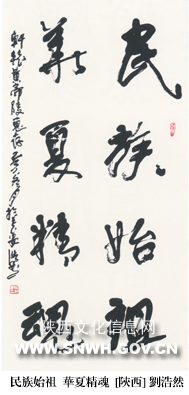 民族始祖
華夏精魂
軒轅黃帝陵惠存
陕西文化信息网
WWW.SNWH.GOV.CN
民族始祖 華夏精魂 [陝西] 劉浩然